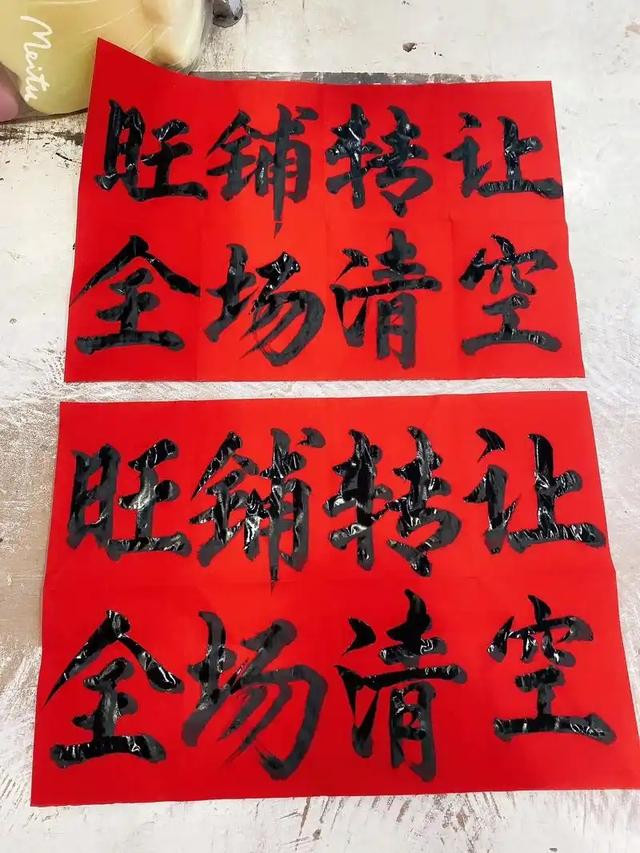 Meitu
旺铺转让
全场清空
旺铺转让
全场清空